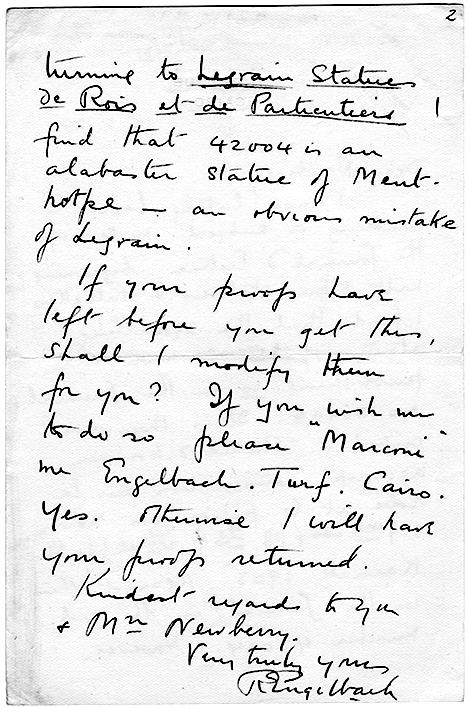 2
turning to Legrain Statues
de Rois et de Particuliers I
find that 42004 is an
alabaster statue of Ment-
hotpe — an obvious mistake
of Legrain.
If your proofs have
left before you get this,
shall I modify them
for you? If you wish me
to do so please "Marconi"
me Engelbach. Turf. Cairo.
Yes. Otherwise I will have
your proofs returned.
Kindest regards to you
& Mrs Newberry.
Very truly yours
R Engelbach